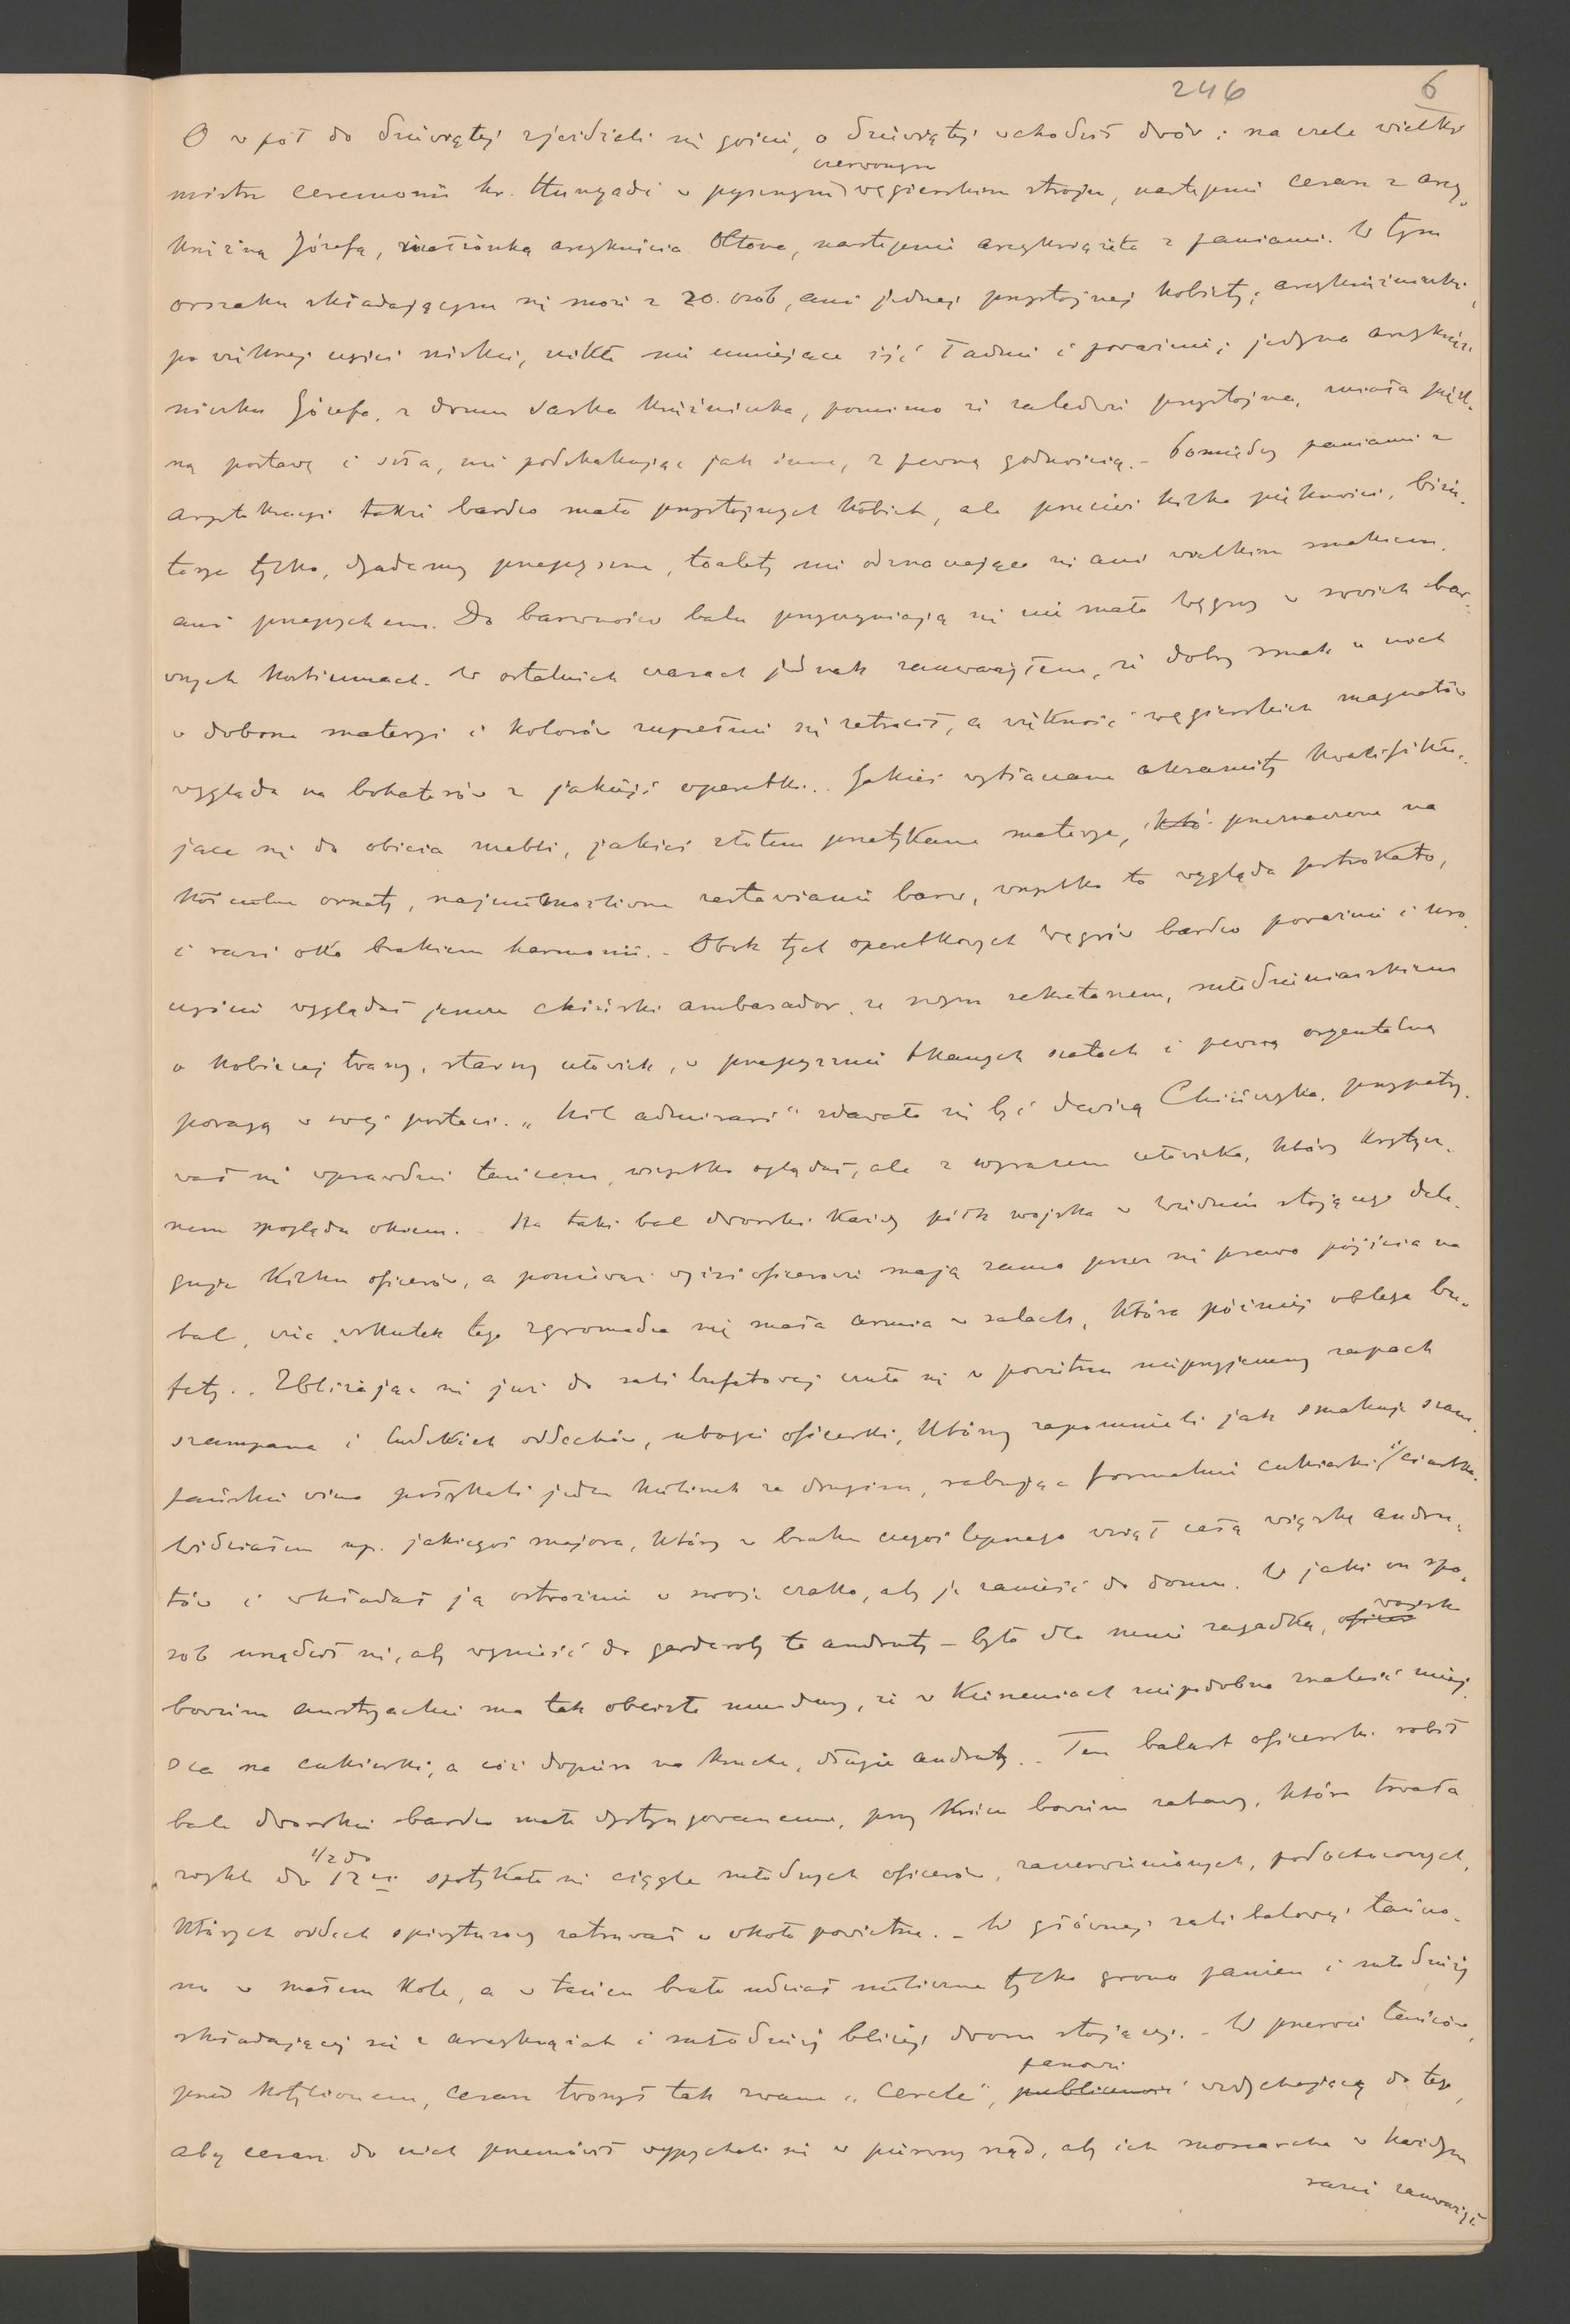 246 6
O w pół do dziewiątej zjeżdżali się goście, o dziewiątej wchodził dwór: na czele wielki
czerwonym
mistrz ceremonii hr. Hunyadi w pysznym węgierskim stroju, następnie cesarz z arcy-
księżną Józefą, małżonką arcyksięcia Ottona, następnie arcyksiążęta z paniami. W tym
orszaku składającym się może z 20. osób, ani jednej przystojnej kobiety; arcyksiężniczki,
po większej części niskie, nikłe nie umiejące iść ładnie i poważnie; jedyna arcyksięż-
niczka Józefa, z domu saska księżniczka, pomimo że zaledwie przystojna, miała pięk-
ną postawę i szła, nie podskakując jak inne, z pewną godnością. - Pomiędzy paniami z
arystokracyi także bardzo mało przystojnych kobiet, ale przecież kilka piękności, biżu-
terye tylko, dyademy przepyszne, toalety nie odznaczające się ani wielkim smakiem,
ani przepychem. Do barwności balu przyczyniają się nie mało Węgrzy w swoich bar-
wnych kostiumach. W ostatnich czasach jednak zauważyłem, że dobry smak u nich
w doborze materyi i kolorów zupełnie się zatracił, a większość węgierskich magnatów
wygląda na bohaterów z jakiejś operetki. Jakieś wytłaczane aksamity kwalifiku-
jące się do obicia mebli, jakieś złotem przetykane materye, przeznaczone na
kościelne ornaty, najniemożliwsze zestawianie barw, wszystko to wygląda pstrokato,
i razi oko brakiem harmonii. - Obok tych operetkowych Węgrów bardzo poważnie i uro-
czyście wyglądał jeszcze chiński ambasador, ze swym sekretarzem, młodzieniaszkiem
o kobiecej twarzy, starszy człowiek, w przepysznie tkanych szatach i pewną oryentalną
powagą w swej postaci. "Nil admirari" zdawało się być dewizą Chińczyka, przypatry-
wał się wprawdzie tańcom, wszystko oglądał, ale z wyrazem człowieka, który krytycz-
nem spogląda okiem. - Na taki bal dworski każdy pułk wojska w Wiedniu stojącego dele-
guje kilku oficerów, a ponieważ wyżsi oficerowie mają samo przez się prawo pójścia na
bal, więc wskutek tego zgromadza się mała armia w salach, która później oblega bu-
fety. Zbliżając się już do sali bufetowej czuło się w powietrzu nieprzyjemny zapach
szampana i ludzkich oddechów, ubogie oficerki, którzy zapomnieli jak smakuje szam-
pańskie wino połykali jeden kieliszek za drugim, rabując formalnie cukierki i ciastka.
Widziałem np. jakiegoś majora, który w braku czegoś lepszego wziął całą wiązkę andru-
tów i wkładał ją ostrożnie w swoje czako, aby je zanieść do domu. W jaki on spo-
sób urządził się, aby wynieść do garderoby te andruty - było dla mnie zagadką,
wojsk
bowiem austryackie ma tak obcisłe mundury, że w kieszeniach niepodobna znaleść miej-
sca na cukierki, a cóż dopiero na kruche, długie andruty. - Ten balast oficerski robił
bale dworskie bardzo mało dystyngowanemi, przy końcu bowiem zabawy, która trwała
1/2 do
zwykle do 12ej spotykało się ciągle młodych oficerów, zaczerwienionych, podochoconych,
których oddech spirytusowy zatruwał w około powietrze. - W głównej sali balowej tańczo-
no w małem kole, a w tańcu brało udział nieliczne tylko grono panien i młodzieży
składającej się z arcyksiążąt i młodzieży bliżej dworu stojącej. - W przerwie tańców,
panowie
przed kotylionem, cesarz tworzył tak zwane "Cercle", publiczność wzdychającą do tego,
aby cesarz do nich przemówił wypychali się w pierwszy rząd, aby ich monarcha w każdym
razie zauważył